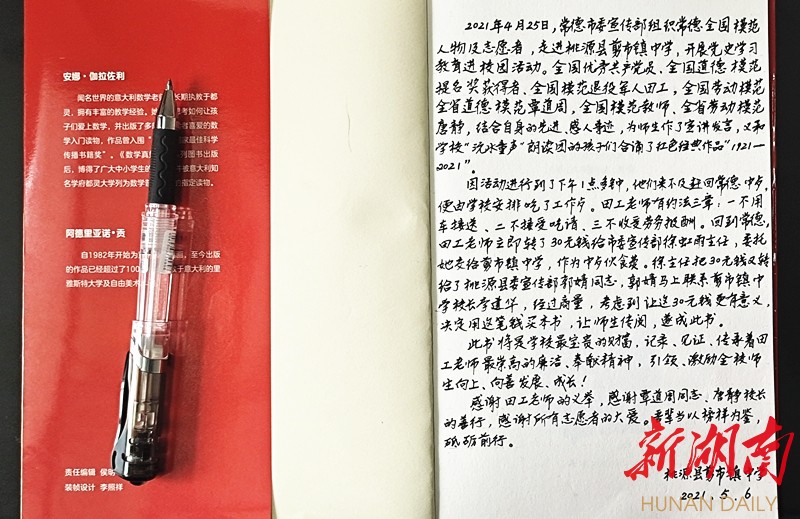 安娜·伽拉佐利
闻名世界的意大利数学老
长期执教于都
灵，拥有丰富的教学经验，她
考如何让孩
子们爱上数学，并出版了多
者喜爱的数
学入门读物，作品曾入围“
家最佳科学
传播书籍奖”。《数学真
列图书出版
后，博得了广大中小学生的
并被意大利知
名学府都灵大学列为数学
指定读物。
阿德里亚诺·贡
自1982年开始为
画，至今出版
的作品已经超过了100
于意大利的里
雅斯特大学及自由美术
责任编辑 侯明
装帧设计 李照祥
2021年4月25日，常德市委宣传部组织常德全国模范
人物及志愿者，走进桃源县剪市镇中学，开展党史学习
教育进校园活动。全国优秀共产党员、全国道德模范
提名奖获得者、全国模范退役军人田工，全国劳动模范
全省道德模范覃道周，全国模范教师、全省劳动模范
唐静，结合自身的先进、感人事迹，为师生作了宣讲发言，又和
学校“沅水童声”朗读团的孩子们合诵了红色经典作品“1921—
2021”。
因活动进行到了下午1点多钟，他们来不及赶回常德中午，
便由学校安排吃了工作午。田工老师有约法三章：一不用
车接送、二不接受吃请、三不收受劳务报酬。回到常德，
田工老师立即转了30元钱给市委宣传部徐虹雨主任，委托
她交给剪市镇中学，作为中午伙食费。徐主任把30元钱又转
给了桃源县委宣传部郭婧同志，郭婧马上联系剪市镇中
学校长李道华，经过商量，考虑到让这30元钱更有意义，
决定用这笔钱买本书，让师生传阅，遂成此书。
此书将是学校最宝贵的财富，记录、见证、传承着田
工老师最崇高的廉洁、奉献精神，引领、激励全校师
生向上、向善发展、成长！
感谢田工老师的义举，感谢覃道周同志、唐静校长
的善行，感谢所有志愿者的大爱。吾辈当以榜样为鉴，
砥砺前行。
桃源县剪市镇中学
2021.5.6
新湖南
HUNAN DAILY